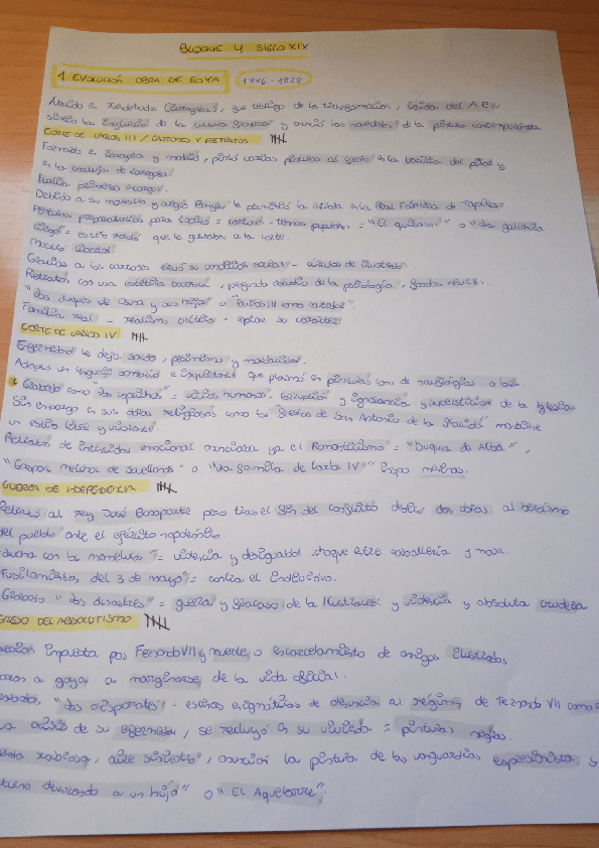 BLOQUE 4 SIGLO XIX
1 EVOLUCIÓN OBRA DE GOYA 1746-1828
Nacido en Fuendetodos (Zaragoza), fue testigo de la transformación, caída del A.R y
sintió la influencia de la y anunció las novedades de la pintura contemporánea
CORTE DE CARLOS III / CARTONES Y RETRATOS
Formado en Zaragoza y Madrid, pintó varias pinturas al fresco en la basílica del pilar y
en la de Zaragoza
Italia primeros encargos.
Debido a su maestro y amigo Bayeu le permitió la entrada en la Real Fábrica de Tapices
Pinturas preparatorias para tapices = cartones - temas populares = "El quitasol" o "La gallinita
ciega" = estilo rococó que le gustaba a la corte.
Gracias a los cartones elevó su condición social - círculos de ilustrados.
Retratos con una estética barroca, profundo estudio de la psicología, fondos neutros.
"Los duques de Osuna y sus hijos" o "Carlos III como cazador".
Familia real - realismo crítico - captar su carácter
CORTE DE CARLOS IV
Enfermedad le deja sordo, pesimismo y
Adopta un lenguaje sombrío e inquietante que plasmó en pinturas como de naufragios o
Grabados como "Los caprichos" = vicios humanos - corrupción y ignorancia y supersticiones de la Iglesia
Sin embargo en sus obras religiosas como los frescos de San Antonio de la Florida mantiene
un estilo libre y vibrante.
Retratos de intensidad emocional anunciaba ya el Romanticismo = "Duquesa de Alba",
"Gaspar Melchor de Jovellanos" o "La familia de Carlos IV"
GUERRA DE INDEPENDENCIA
Retrató al rey José Bonaparte pero tras el fin del conflicto dedicó dos obras al heroísmo
del pueblo ante el ejército napoleónico.
Lucha con los mamelucos" = violencia y desigualdad choque entre caballería y masa.
Fusilamientos del 3 de mayo" = contra el individuo.
Grabados "Los desastres" = guerra y fracaso de la Ilustración y violencia y absoluta crudeza
DEL ABSOLUTISMO
impuesta por Fernando VII y muerte o encarcelamiento de amigos ilustrados,
a Goya a marginarse de la vida oficial.
"Los disparates" - escenas enigmáticas de denuncia al régimen de Fernando VII como
de su enfermedad, se recluyó en su vivienda = pinturas negras.
rabiosa, aire siniestro, anuncian la pintura de las vanguardias expresionista
devorando a un hijo" o "El Aquelarre".